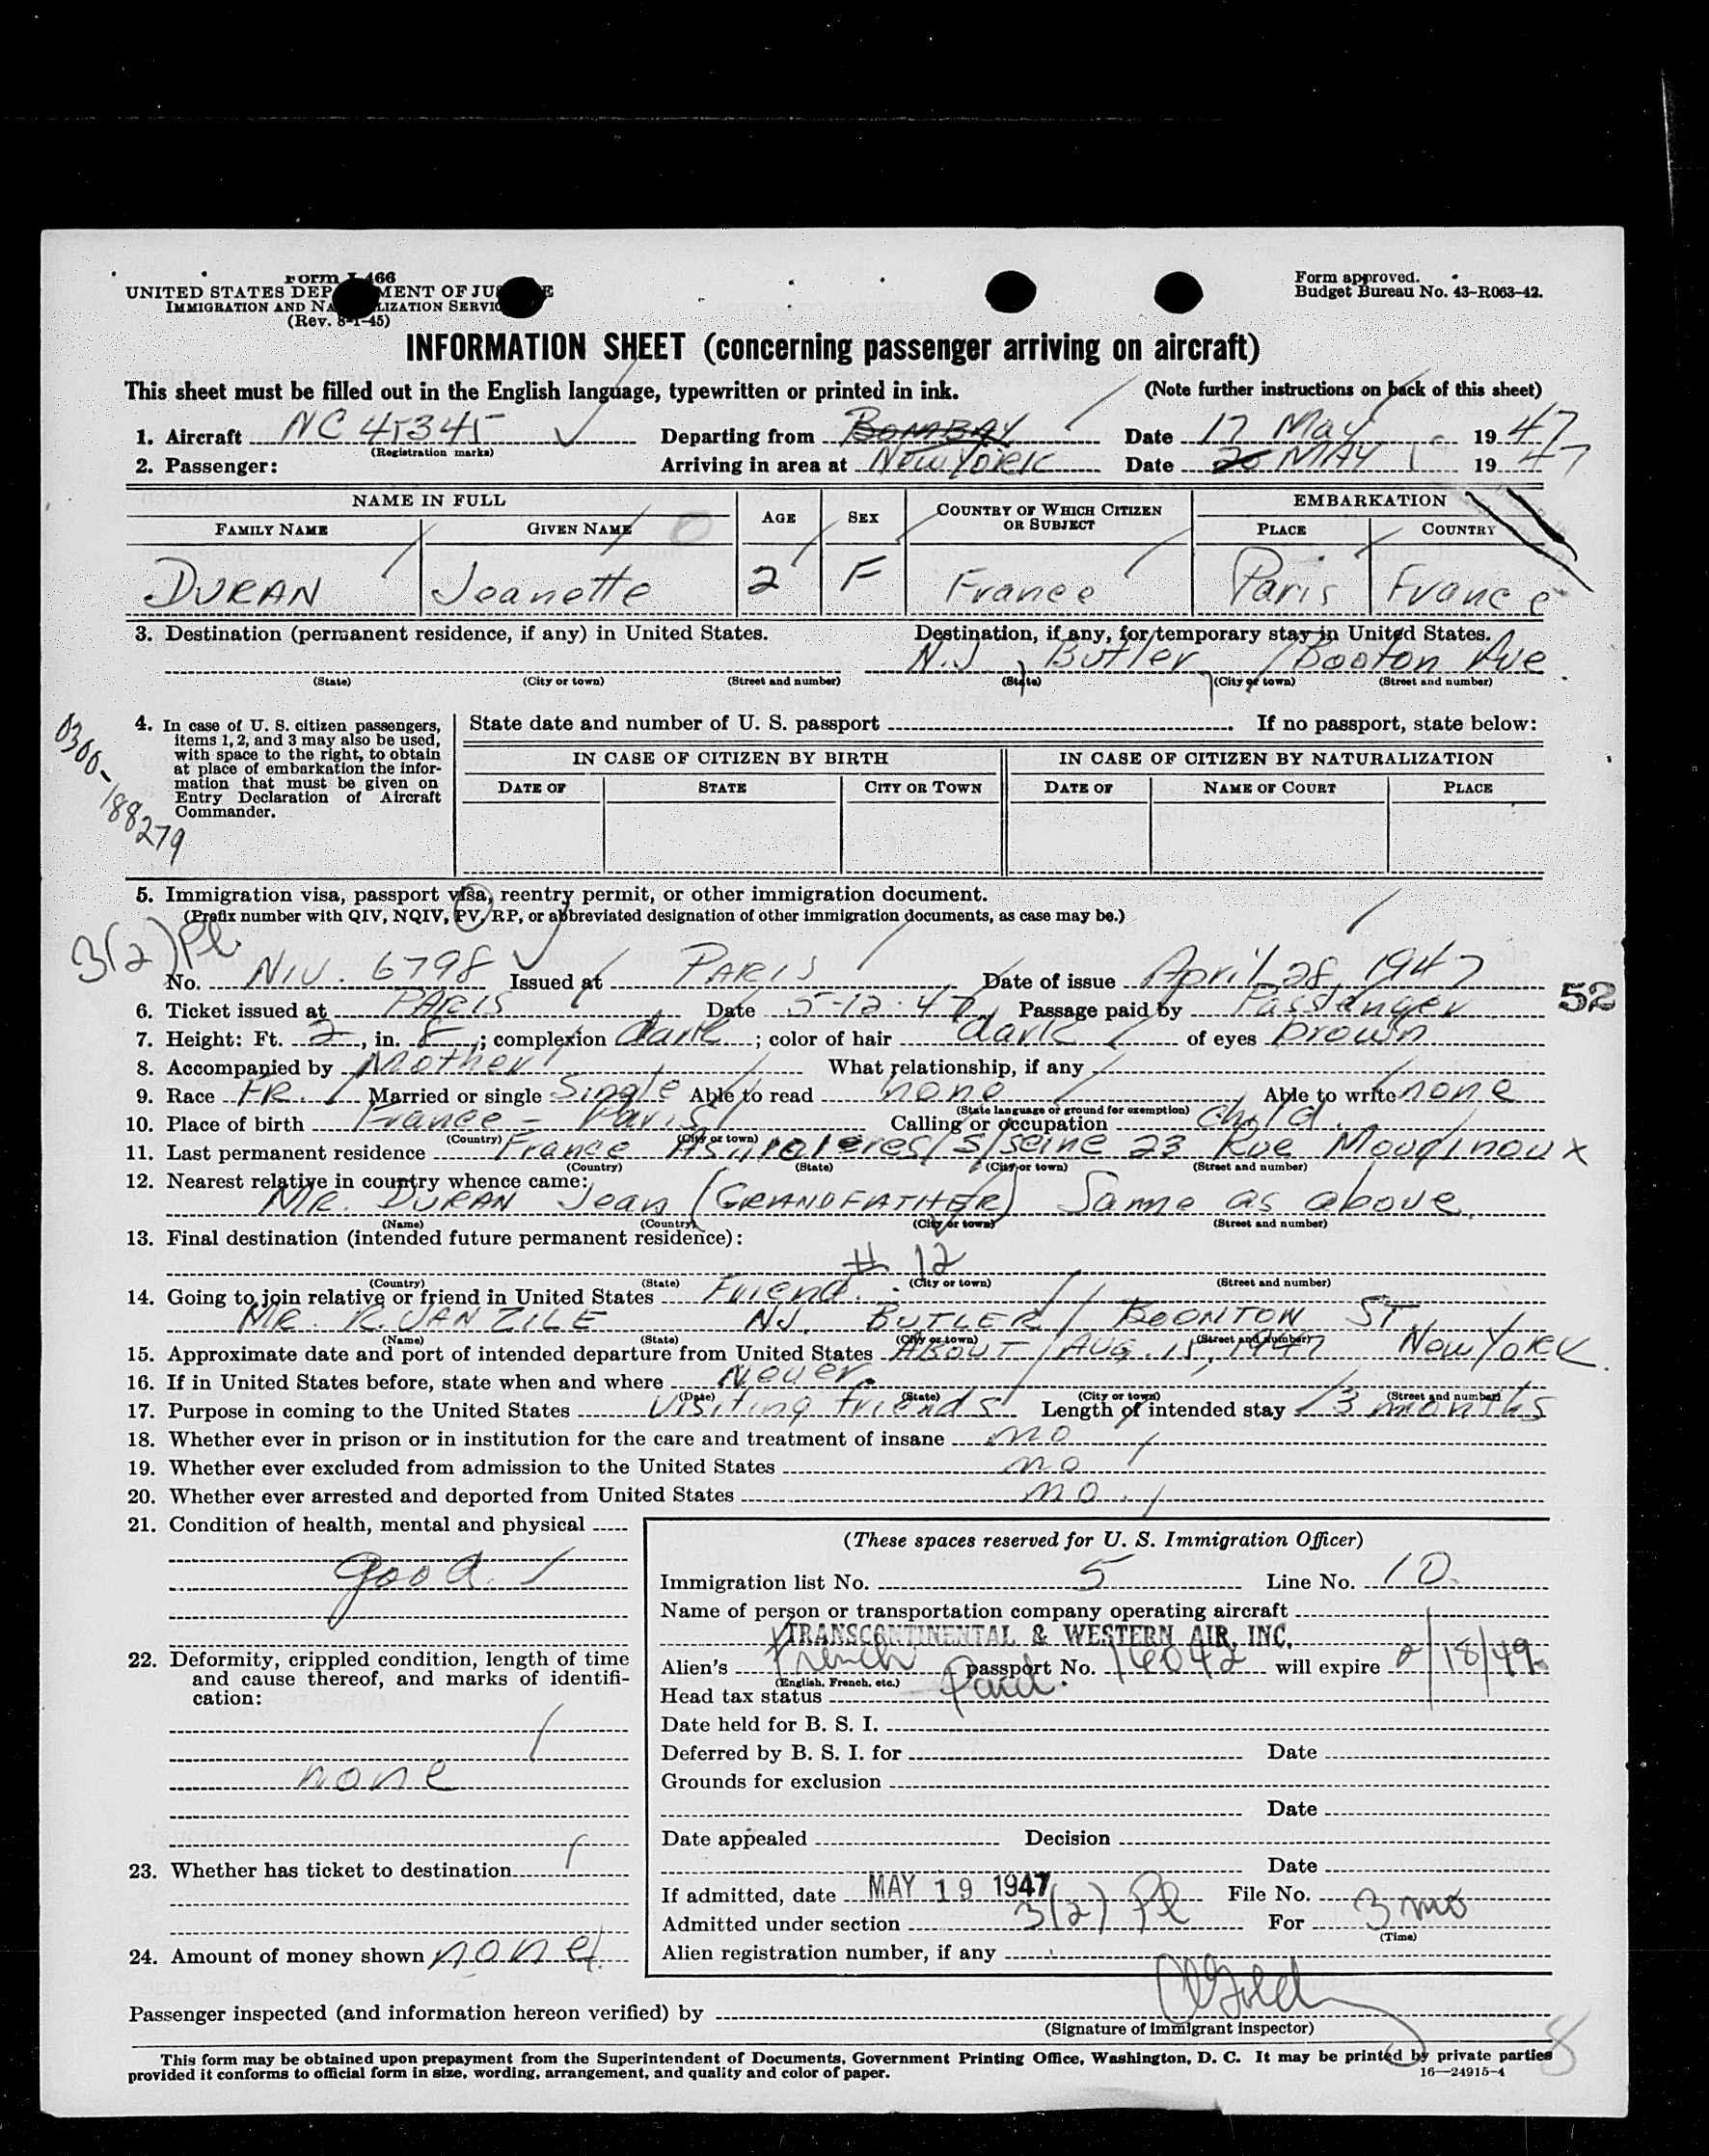 Form I-466
UNITED STATES DEPARTMENT OF JUSTICE
IMMIGRATION AND NATURALIZATION SERVICE
(Rev. 8-1-45)
Form approved.
Budget Bureau No. 43-R063-42.
INFORMATION SHEET (concerning passenger arriving on aircraft)
This sheet must be filled out in the English language, typewritten or printed in ink. (Note further instructions on back of this sheet)
1. Aircraft NC 45345 Departing from BOMBAY Date 17 May 1947
(Registration marks)
2. Passenger: Arriving in area at NEW YORK Date 20 MAY 1947
NAME IN FULL AGE SEX COUNTRY OF WHICH CITIZEN OR SUBJECT EMBARKATION
FAMILY NAME GIVEN NAME PLACE COUNTRY
DURAN Jeanette 2 F France Paris France
3. Destination (permanent residence, if any) in United States. Destination, if any, for temporary stay in United States.
N.J Butler Booton Ave
(State) (City or town) (Street and number) (State) (City or town) (Street and number)
0300-188279
4. In case of U. S. citizen passengers, items 1, 2, and 3 may also be used, with space to the right, to obtain at place of embarkation the information that must be given on Entry Declaration of Aircraft Commander.
State date and number of U. S. passport If no passport, state below:
IN CASE OF CITIZEN BY BIRTH IN CASE OF CITIZEN BY NATURALIZATION
DATE OF STATE CITY OR TOWN DATE OF NAME OF COURT PLACE
5. Immigration visa, passport visa, reentry permit, or other immigration document.
(Prefix number with QIV, NQIV, PV, RP, or abbreviated designation of other immigration documents, as case may be.)
3(2) Pl
No. NIV. 6798 Issued at PARIS Date of issue April 28, 1947
52
6. Ticket issued at PARIS Date 5-12-47 Passage paid by Passenger
7. Height: Ft. 2, in. 8; complexion dark; color of hair dark of eyes brown
8. Accompanied by Mother What relationship, if any
9. Race FR. Married or single Single Able to read none Able to write none
(State language or ground for exemption)
10. Place of birth France - Paris Calling or occupation child.
(Country) (City or town)
11. Last permanent residence France S/Seine 23 Rue
(Country) (State) (City or town) (Street and number)
12. Nearest relative in country whence came:
MR. DURAN Jean (GRANDFATHER) Same as above.
(Name) (Country) (City or town) (Street and number)
13. Final destination (intended future permanent residence):
# 12
(Country) (State) (City or town) (Street and number)
14. Going to join relative or friend in United States Friend.
MR. R. VAN ZILE NJ. BUTLER BOONTON ST.
(Name) (State) (City or town) (Street and number)
15. Approximate date and port of intended departure from United States ABOUT AUG. 15, 1947 New YORK
16. If in United States before, state when and where Never.
(Date) (State) (City or town) (Street and number)
17. Purpose in coming to the United States Visiting friends Length of intended stay 3 months
18. Whether ever in prison or in institution for the care and treatment of insane no
19. Whether ever excluded from admission to the United States no
20. Whether ever arrested and deported from United States no.
21. Condition of health, mental and physical
good.
22. Deformity, crippled condition, length of time and cause thereof, and marks of identification:
none
23. Whether has ticket to destination
24. Amount of money shown none
(These spaces reserved for U. S. Immigration Officer)
Immigration list No. 5 Line No. 10
Name of person or transportation company operating aircraft
TRANSCONTINENTAL & WESTERN AIR, INC.
Alien's French passport No. 16042 will expire 2/18/49
(English, French, etc.)
Head tax status Paid.
Date held for B. S. I.
Deferred by B. S. I. for Date
Grounds for exclusion
Date
Date appealed Decision
Date
If admitted, date MAY 19 1947 File No.
Admitted under section 3(2) Pl For 3 mo
(Time)
Alien registration number, if any
Passenger inspected (and information hereon verified) by Gold
(Signature of immigrant inspector)
8
This form may be obtained upon prepayment from the Superintendent of Documents, Government Printing Office, Washington, D. C. It may be printed by private parties
provided it conforms to official form in size, wording, arrangement, and quality and color of paper. 16—24915-4